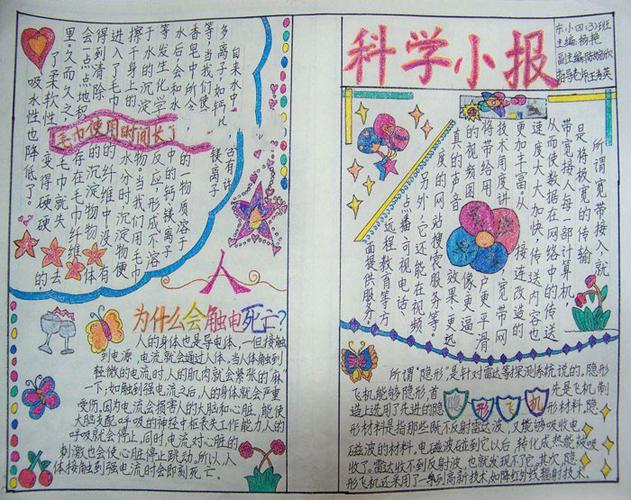 科学小报
东小四(3)班
主编:杨艳
副主编:陈婉欣
指导老师:王秀英
所谓宽带接入,就
是将极宽的传输
带宽接入每一部计算机,
从而使数据在网络中的传送
速度大大加快,传送内容也
更加丰富。从接连改造的
技术角度讲,宽带网
将带给用户更平滑
的视频图像、更逼
真的声音效果、更迅
度的网站搜索服务等。
另外,它还能在视频
点播、可视电话、
远程教育等方
面提供服务。
隐形飞机
所谓“隐形”,是针对雷达等探测系统说的。隐形
飞机能够隐形,首先是飞机制
造上选用了先进的隐形材料。隐
形材料是指那些既不反射雷达,又能够吸收电
磁波的材料。电磁波碰到它以后,转化成热能被吸
收了。雷达收不到反射波,也就发现不了它。其次,隐
形飞机还采用了一系列高新技术,如降红外线辐射技术。
毛巾使用时间长了
自来水中,含有许
多离子,如钙、镁离子
等,当我们使
香皂中所含的一物质溶于
水后,会和水中的钙镁离子
等发生化学反应,形成不溶
于水的沉淀物。当我们用毛巾
擦干身上的水分时,沉淀物便
进入了毛巾的纤维中,没有
得到清除的沉淀物,
会一点点地积存在毛巾纤维
里。久而久之,毛巾就失去
了柔软性,变得硬硬的
吸水性也降低了。
人
为什么会触电死亡?
人的身体也是导电体,一但接触
到电源,电流就会通过人体。当人体触到
轻微的电流时,人的肌肉就会紧张的“麻”
一下;如触到强电流之后,人的身体就会严重
受伤。因为电流会损害人的大脑和心脏,能使
大脑支配呼吸的神经中枢丧失工作能力,人的
呼吸就会停止。同时,电流对心脏的
刺激也会使心脏停止跳动。所以,人
体接触到强电流时会即刻死亡。